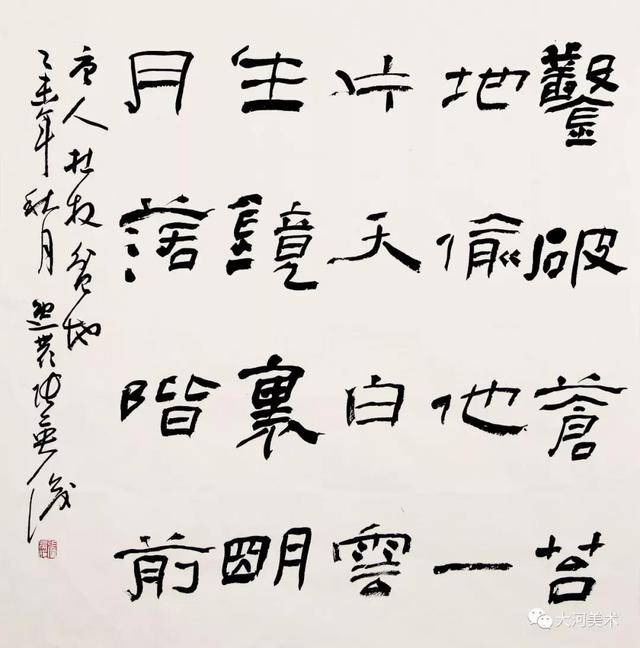 鑿破蒼苔
地偷他一
片天白雲
生鏡裏明
月落階前
唐人杜牧盆池
乙未年秋月
大河美术